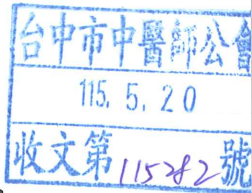 台中市中醫師公會
115. 5. 20
收文第115282號